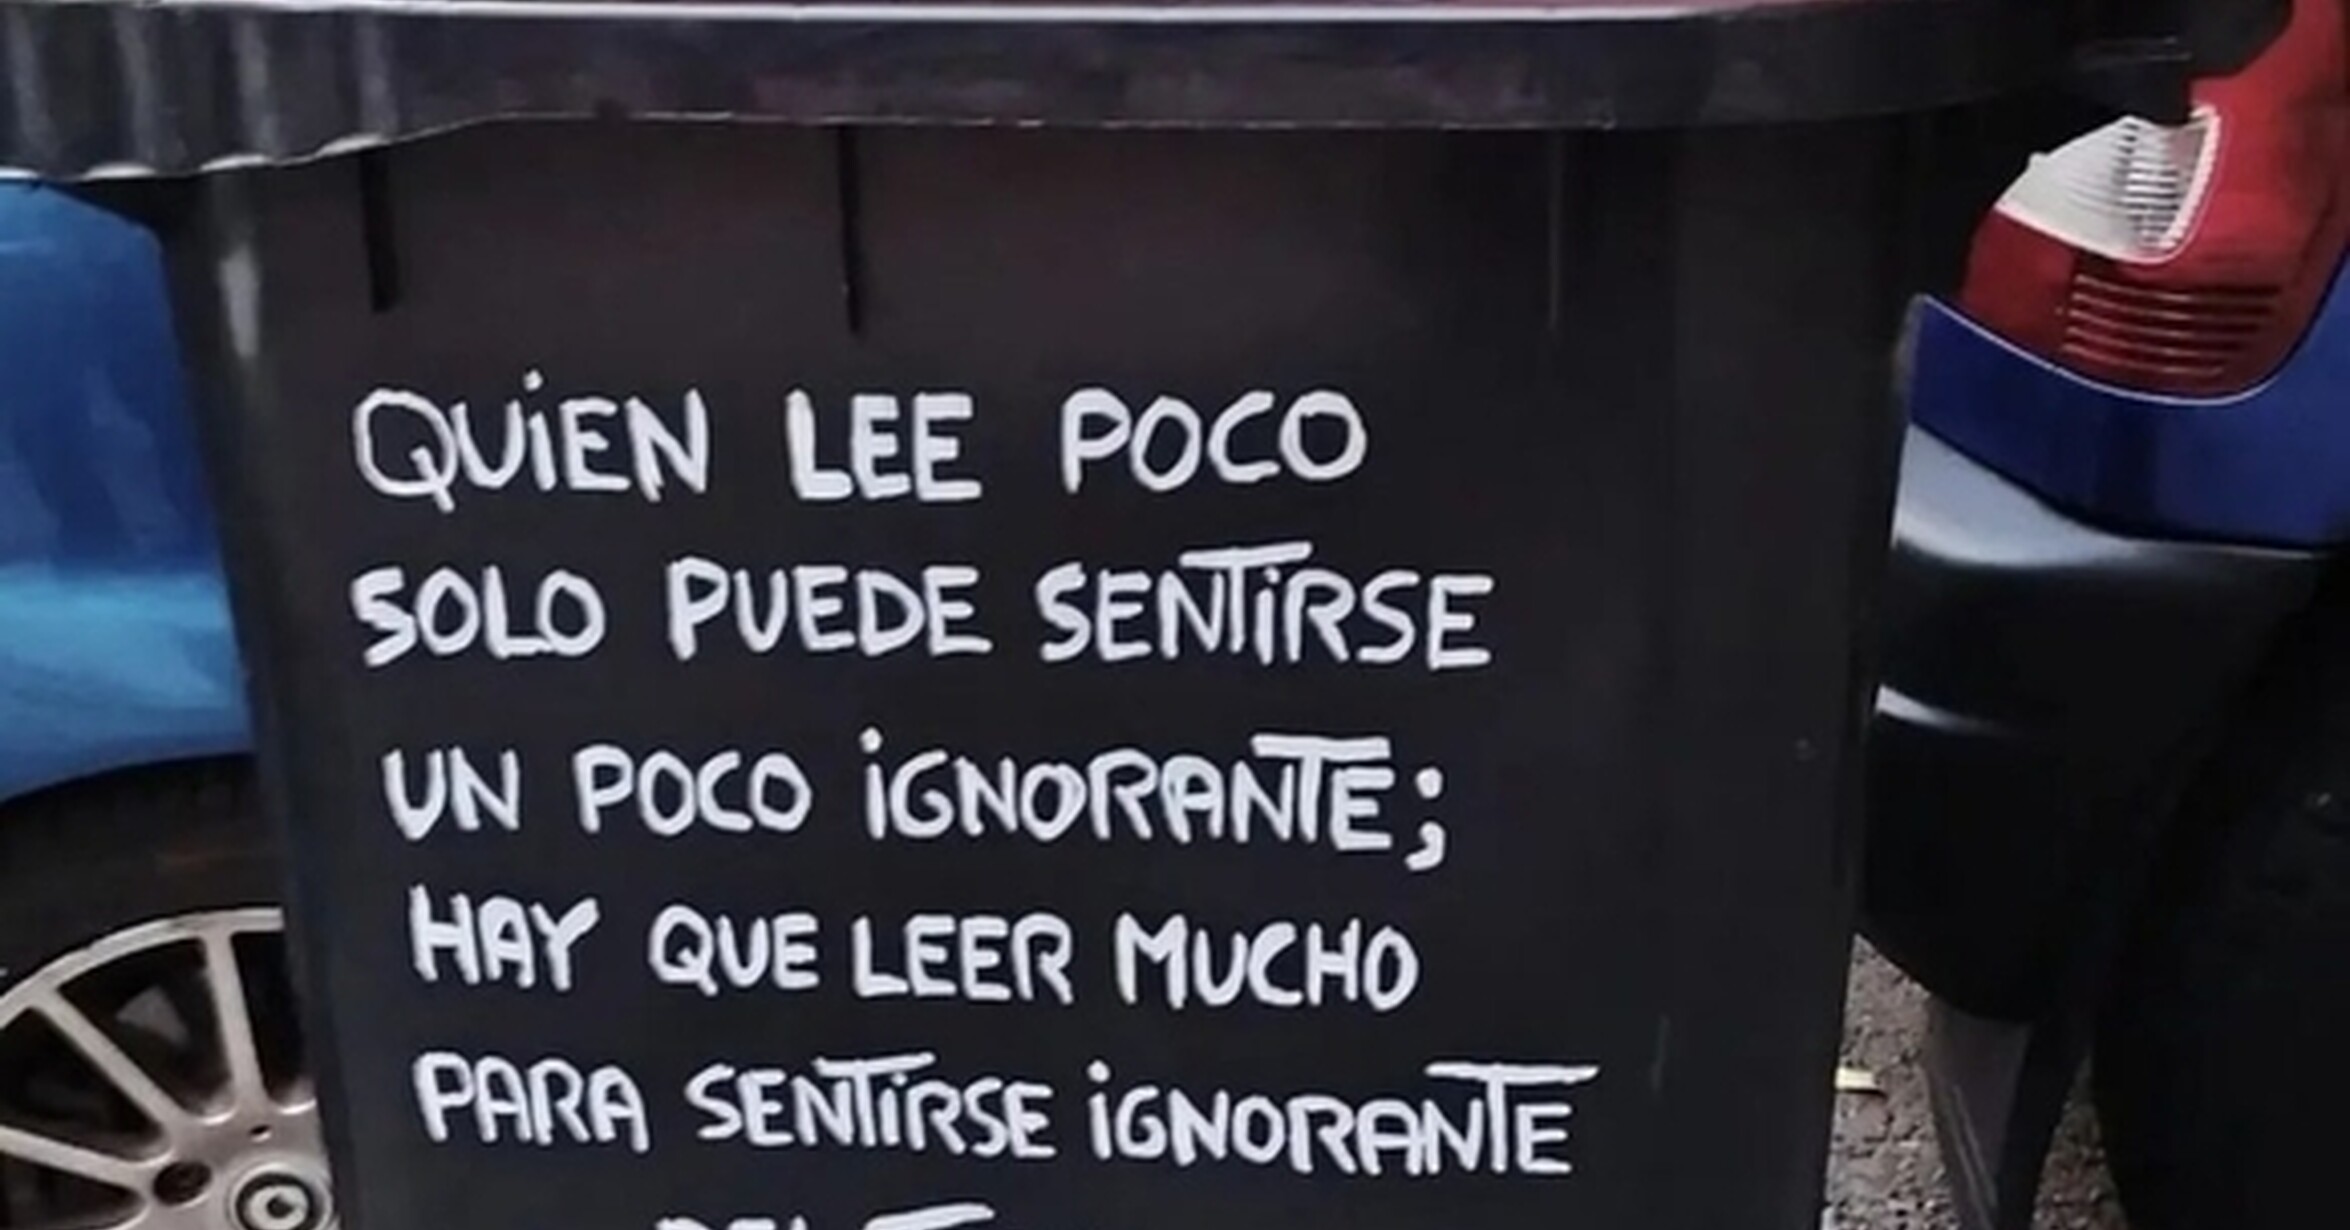 QUIEN LEE POCO
SOLO PUEDE SENTIRSE
UN POCO IGNORANTE;
HAY QUE LEER MUCHO
PARA SENTIRSE IGNORANTE